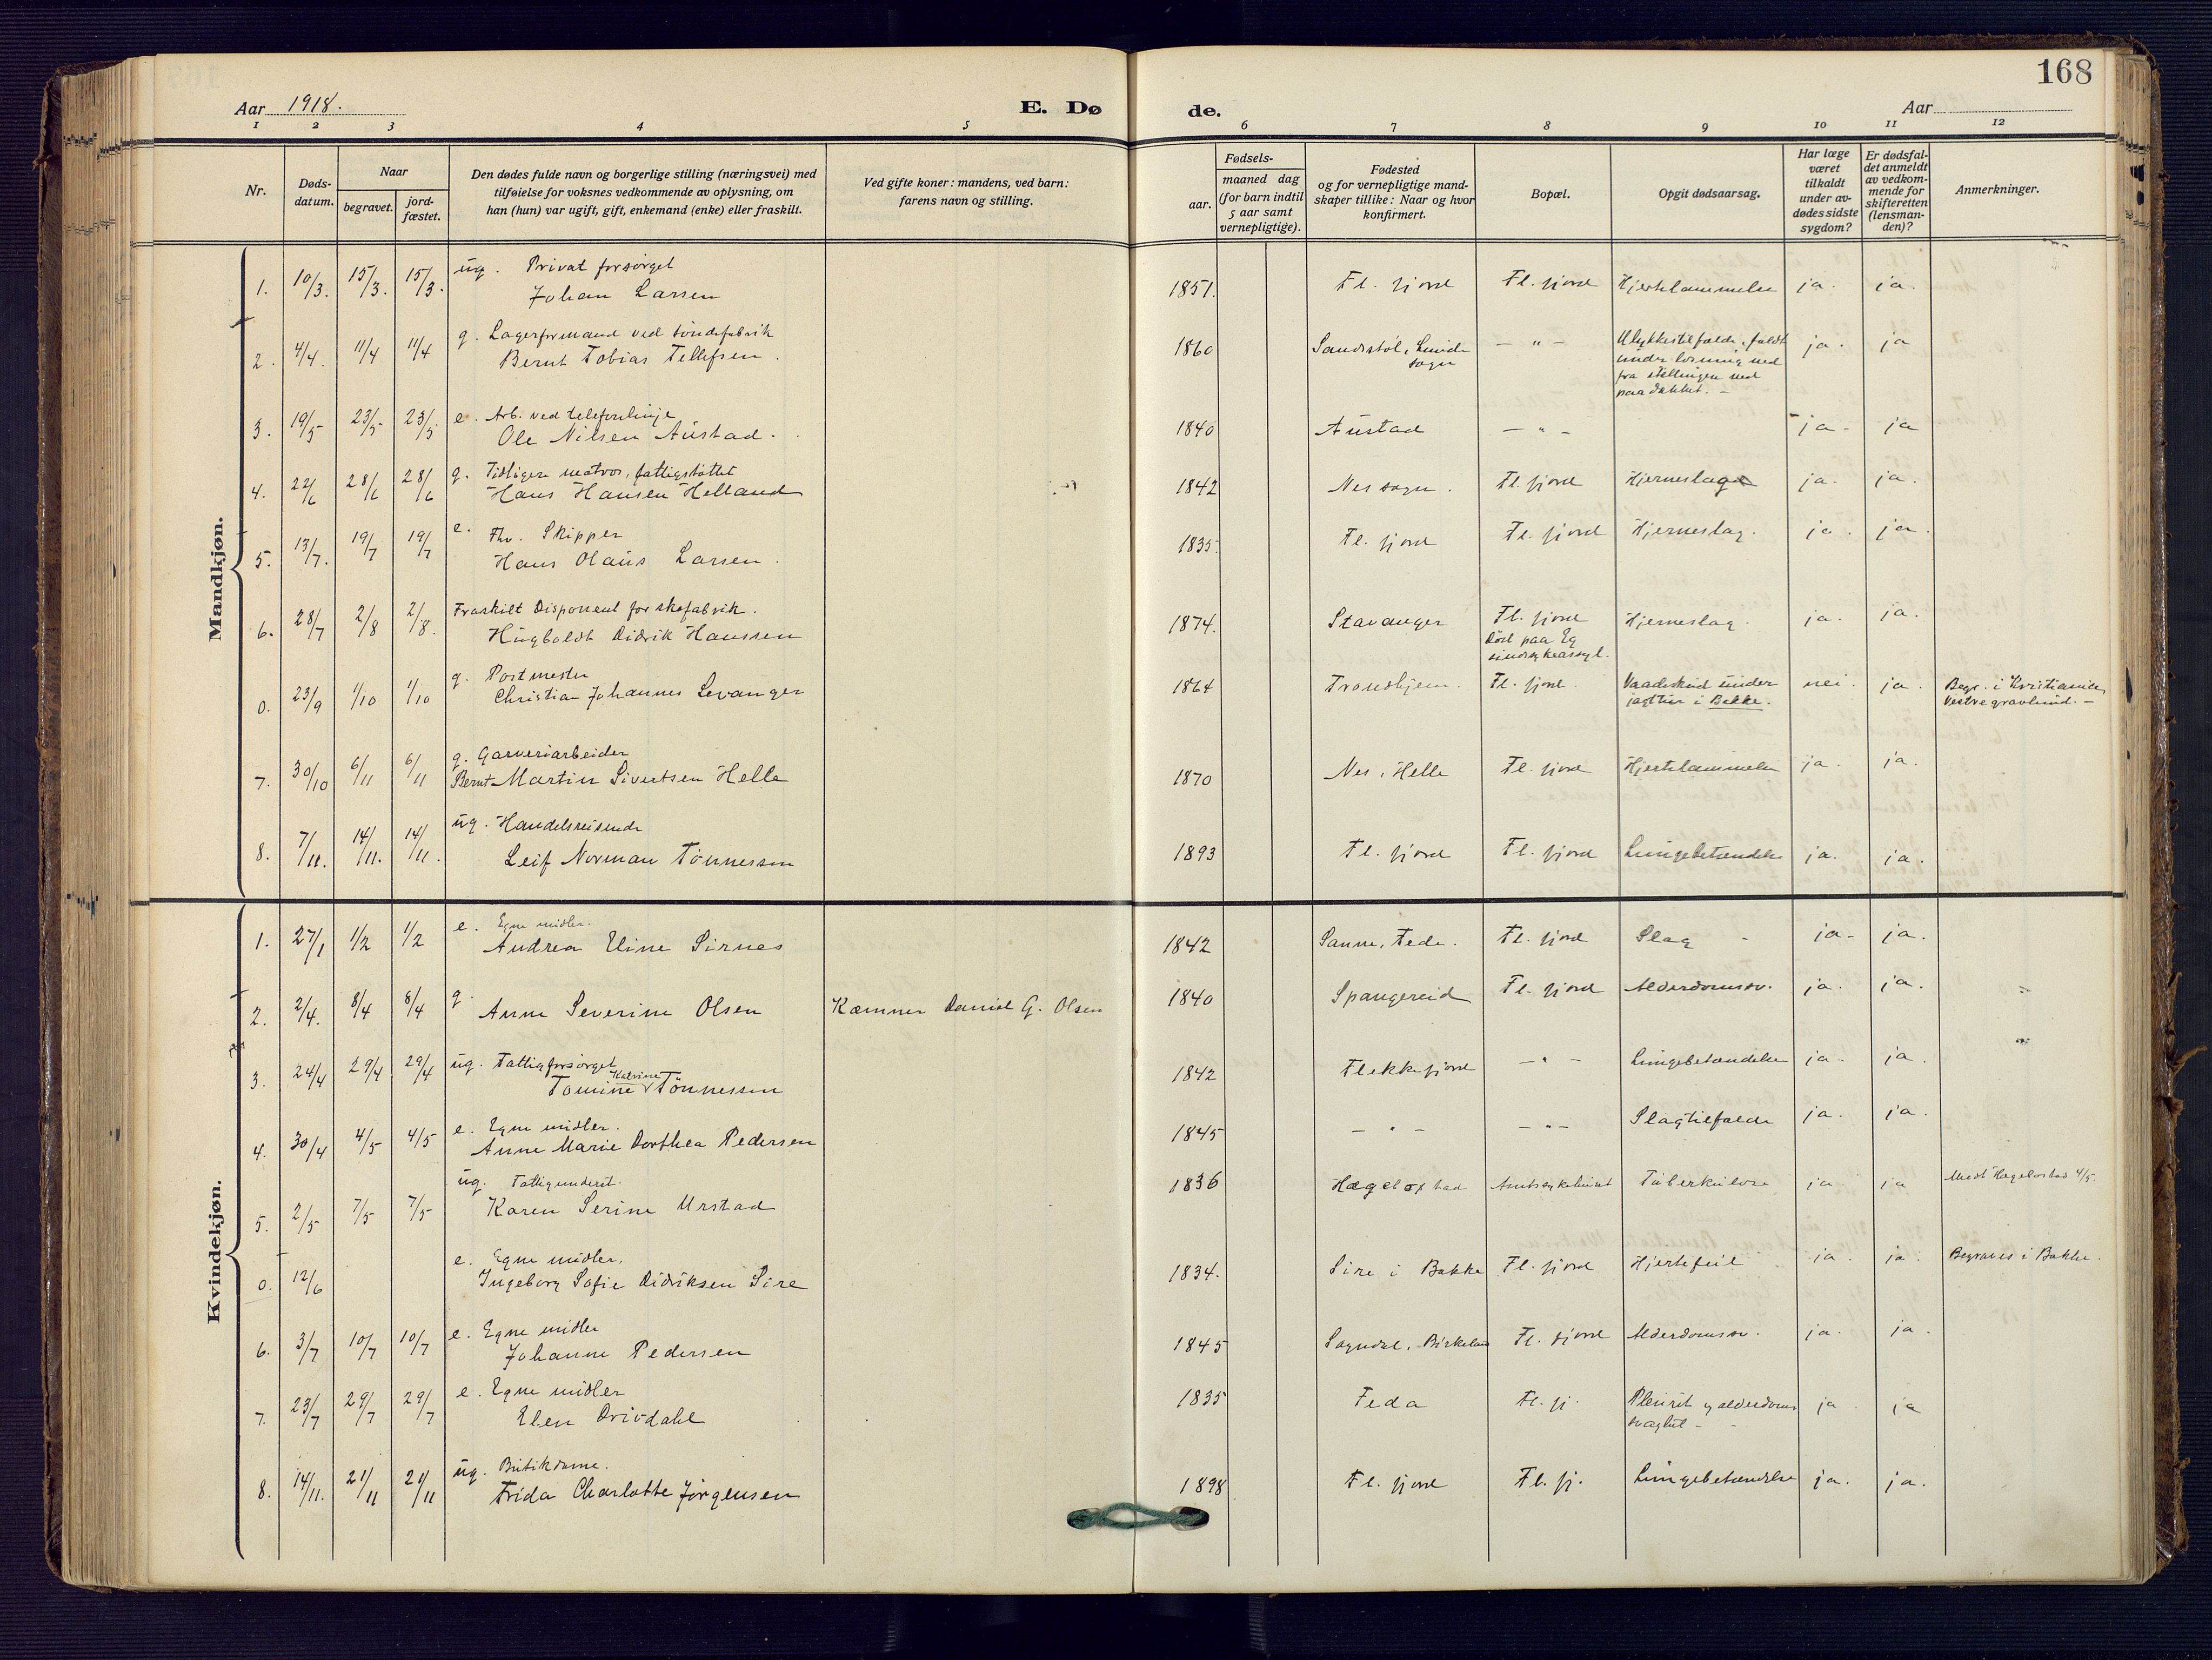 168
Aar 1918.
E. Dø de.
Aar
1 2 3 4 5 6 7 8 9 10 11 12
Nr.
Døds-datum.
Naar
begravet.
jord-fæstet.
Den dødes fulde navn og borgerlige stilling (næringsvei) med
tilføielse for voksnes vedkommende av oplysning, om
han (hun) var ugift, gift, enkemand (enke) eller fraskilt.
Ved gifte koner: mandens, ved barn:
farens navn og stilling.
Fødsels-
aar.
maaned dag
(for barn indtil
5 aar samt
vernepligtige).
Fødested
og for vernepligtige mand-
skaper tillike: Naar og hvor
konfirmert.
Bopæl.
Opgit dødsaarsag.
Har læge
været
tilkaldt
under av-
dødes sidste
sygdom?
Er dødsfal-
det anmeldt
av vedkom-
mende for
skifteretten
(lensman-
den)?
Anmerkninger.
Mandkjøn.
ug. Privat forsørget
1. 10/3. 15/3. 15/3. Johan Larsen 1851. Fl. fjord Fl. fjord Hjertelammelse ja. ja.
g. Lagerformand ved tøndefabrik
2. 4/4. 11/4 11/4 Bernt Tobias Tellefsen. 1860 Sandstøl, Lunde sogn — " — Ulykkestilfælde, faldt
under losning ned
fra stillingen ned
paa dækket. — ja. ja
e. Arb. ved telefonlinje
3. 19/5 23/5 23/5 Ole Nilsen Austad. 1840 Austad — " — ja. ja
g. Tidligere matros, fattigstøttet
4. 22/6 28/6 28/6 Hans Hansen Helland 1842 Nes sogn. Fl. fjord Hjerneslag ja. ja.
e. Fhv. Skipper
5. 13/7. 19/7 19/7 Hans Olaus Larsen. 1835. Fl. fjord Fl. fjord Hjerneslag. ja. ja.
Fraskilt Disponent for skofabrik.
6. 28/7 2/8 2/8. Hugboldt Didrik Hanssen 1874. Stavanger Fl. fjord
Død paa Eg
sindssykeasyl. Hjerneslag. ja. ja.
g. Postmester
0. 23/9 1/10 1/10 Christian Johannes Levanger 1864 Trondhjem. Fl. fjord. Vaadeskud under
jagttur i Bakke. nei. ja. Begr. i Kristiania,
Vestre gravlund. —
g. Garveriarbeider
7. 30/10 6/11 6/11 Bernt Martin Sivertsen Helle 1870 Nes, Helle Fl. fjord Hjertelammelse ja. ja.
ug. Handelsreisende
8. 7/11. 14/11. 14/11. Leif Norman Tønnessen 1893 Fl. fjord Fl. fjord Lungebetændelse ja. ja.
Kvindekjøn.
e. Egne midler.
1. 27/1 1/2 1/2 Andrea Eline Sirnes 1842 Sanne, Feda. Fl. fjord Slag ja. ja.
g.
2. 2/4. 8/4 8/4 Anne Severine Olsen Kæmner Daniel G. Olsen 1840 Spangereid Fl. fjord Alderdomssv. ja. ja.
ug. Fattigforsørget
3. 24/4 29/4 29/4 Tomine Katrine Tønnessen 1842 Flekkefjord — " — Lungebetændelse ja. ja.
e. Egne midler.
4. 30/4 4/5 4/5 Anne Marie Dorthea Pedersen 1845 — " — — " — Slagtilfælde ja. ja.
ug. Fattigunderst.
5. 2/5 7/5 7/5 Karen Serine Urstad 1836 Hægebostad Amtssykehuset Tuberkulose ja ja Medt Hægebostad 4/5
e. Egne midler.
0. 12/6 Ingeborg Sofie Didriksen Sire 1834. Sire i Bakke Fl. fjord Hjertefeil ja. ja. Begraves i Bakke.
e. Egne midler
6. 3/7 10/7 10/7 Johanne Pedersen 1845 Sogndal, Birkeland Fl. fjord Alderdomssv. ja. ja.
e. Egne midler
7. 23/7 29/7 29/7 Elen Drivdahl 1835 Feda Fl. fj. Pleurit og alderdoms
svaghet — ja ja
ug. Butikdame.
8. 14/11. 21/11 21/11 Frida Charlotte Jörgensen 1898 Fl. fjord Fl. fj. Lungebetændelse ja. ja.